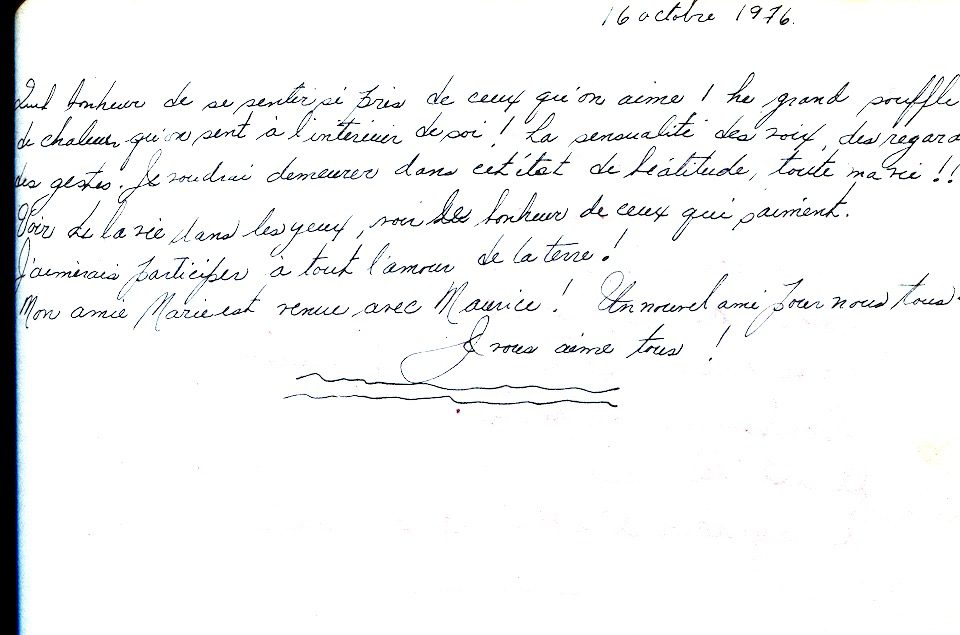 16 octobre 1976.
Quel bonheur de se sentir si près de ceux qu'on aime ! Le grand souffle
de chaleur qu'on sent à l'intérieur de soi ! La sensualité des voix, des regard
des gestes. Je voudrai demeurer dans cet état de béatitude, toute ma vie !!
Voir de la vie dans les yeux, voir bonheur de ceux qui s'aiment.
J'aimerais participer à tout l'amour de la terre !
Mon amie Marie est venue avec Maurice ! Un nouvel ami pour nous tous.
Je vous aime tous !